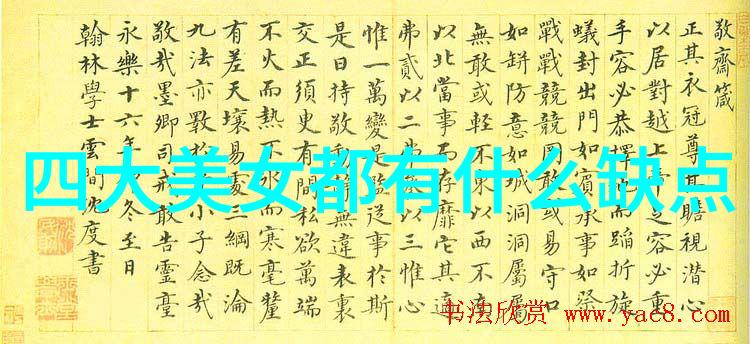 敬齋箴
正其衣冠尊其瞻視潛心
以居對越上帝足容必重
手容必恭擇地而蹈折旋
蟻封出門如賓承事如祭
戰戰兢兢罔敢或易守口
如缾防意如城洞洞屬屬
無敢或輕不東以西不南
以北當事而存靡它其適
弗貳以二弗參以三惟心
惟一萬變是監從事於斯
是曰持敬動靜無違表裏
交正須臾有間私欲萬端
不火而熱不冰而寒毫釐
有差天壤易處三綱既淪
九法亦斁小子念哉
敬哉墨卿司戒敢告靈臺
永樂十六年冬至日
翰林學士雲間沈度書
四大美女都有什么缺点
书法欣赏
www.yac8.com